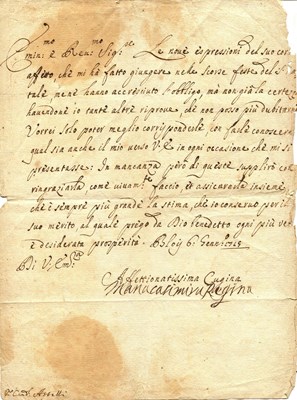 Emin: e Reu: Sig:
Le noue espressioni del suo cor:
affetto, che mi hà fatto giungere nelle scorse feste del
tale, menè hanno accresciuto l'obligo, mà non già la certez
hauendone io tante altre riproue, che non posso più dubitarne
Vorrei solo poter meglio corrispondele, con farle conoscere
qual sia anche il mio uerso V.E. in ogni occasione che mi si
presentasse: In mancanza però di queste suppliró col
ringratiarla come uiuam.te faccio, et assicurarla insieme
che è sempre più grande la stima, che io conseruo per il
suo merito al quale prego da Dio benedetto ogni più ve
e desiderata prosperità. Bloys 6 Genn: 1715
Di V. Em:
Affettionatissima Cugina
Maria Casimira Regina
Astalli